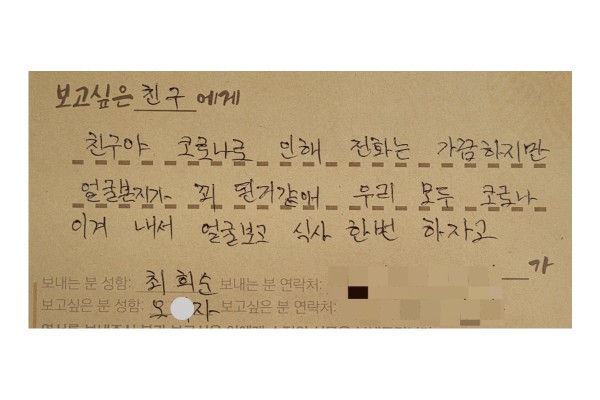 보고싶은 친구 에게
친구야 코로나로 인해 전화는 가끔하지만
얼굴본지가 꾀 된거같애 우리 모두 코로나
이겨 내서 얼굴보고 식사 한번 하자고
가
보내는 분 성함: 최희순 보내는 분 연락처:
보고싶은 분 성함: 오 자 보고싶은 분 연락처: